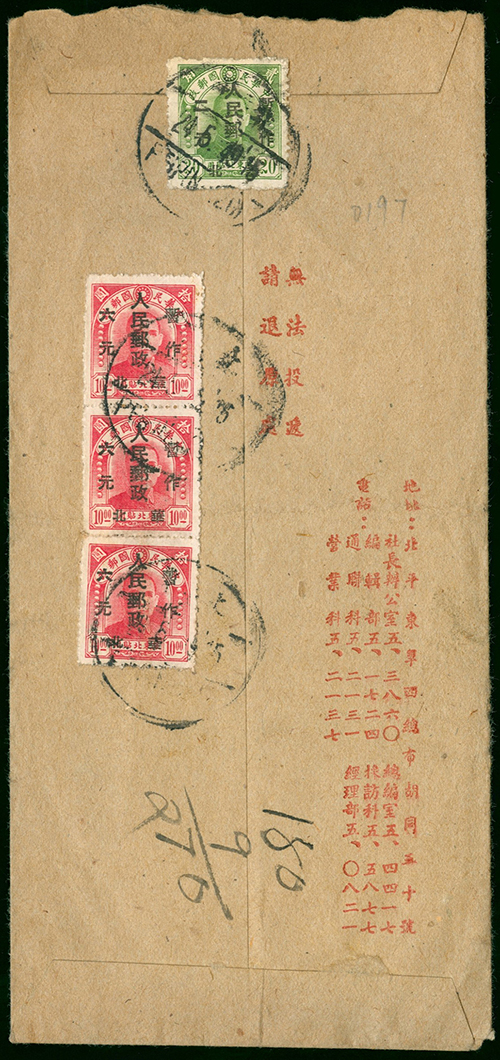 圓 郵國民 貳
人民郵
二 暫作
北
20
24.5
D197
無法投遞
請退原處
拾 民 國郵 圓
人民郵政
暫作
六元
華北
10⁰⁰ 10⁰⁰
人民郵政
暫作
六元
華北
10⁰⁰ 10⁰⁰
拾 民 國郵 圓
人民郵政
暫作
六元
華北
10⁰⁰ 10⁰⁰
地址：北平東單西總布胡同五十號
電話：
社長辦公室五、三八六〇 總編室五、四四一七
編輯部五、一七二四 採訪科五、五八七七
通聯科五、二一三一 經理部五、〇八二一
營業科五、二一三七
180
9
270